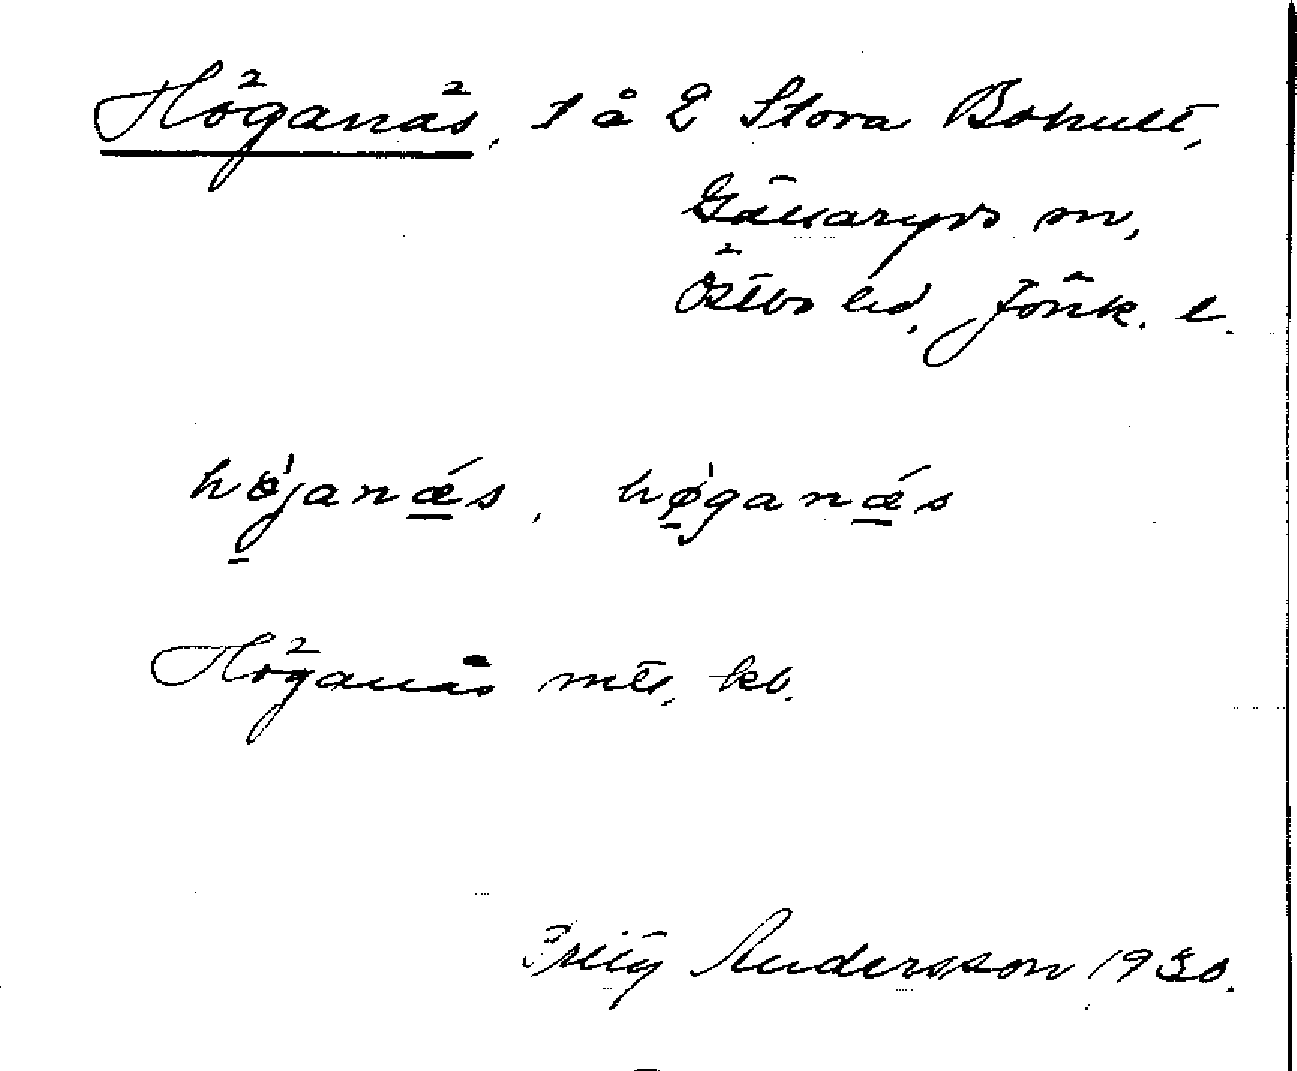 Höganäs, 1 å 2 Stora Bohult,
Gällaryds sn,
Östbo hd, Jönk. l.
højanǽs, høganǽs
Höganäs mtl, kb.
Fritz Andersson 1930.